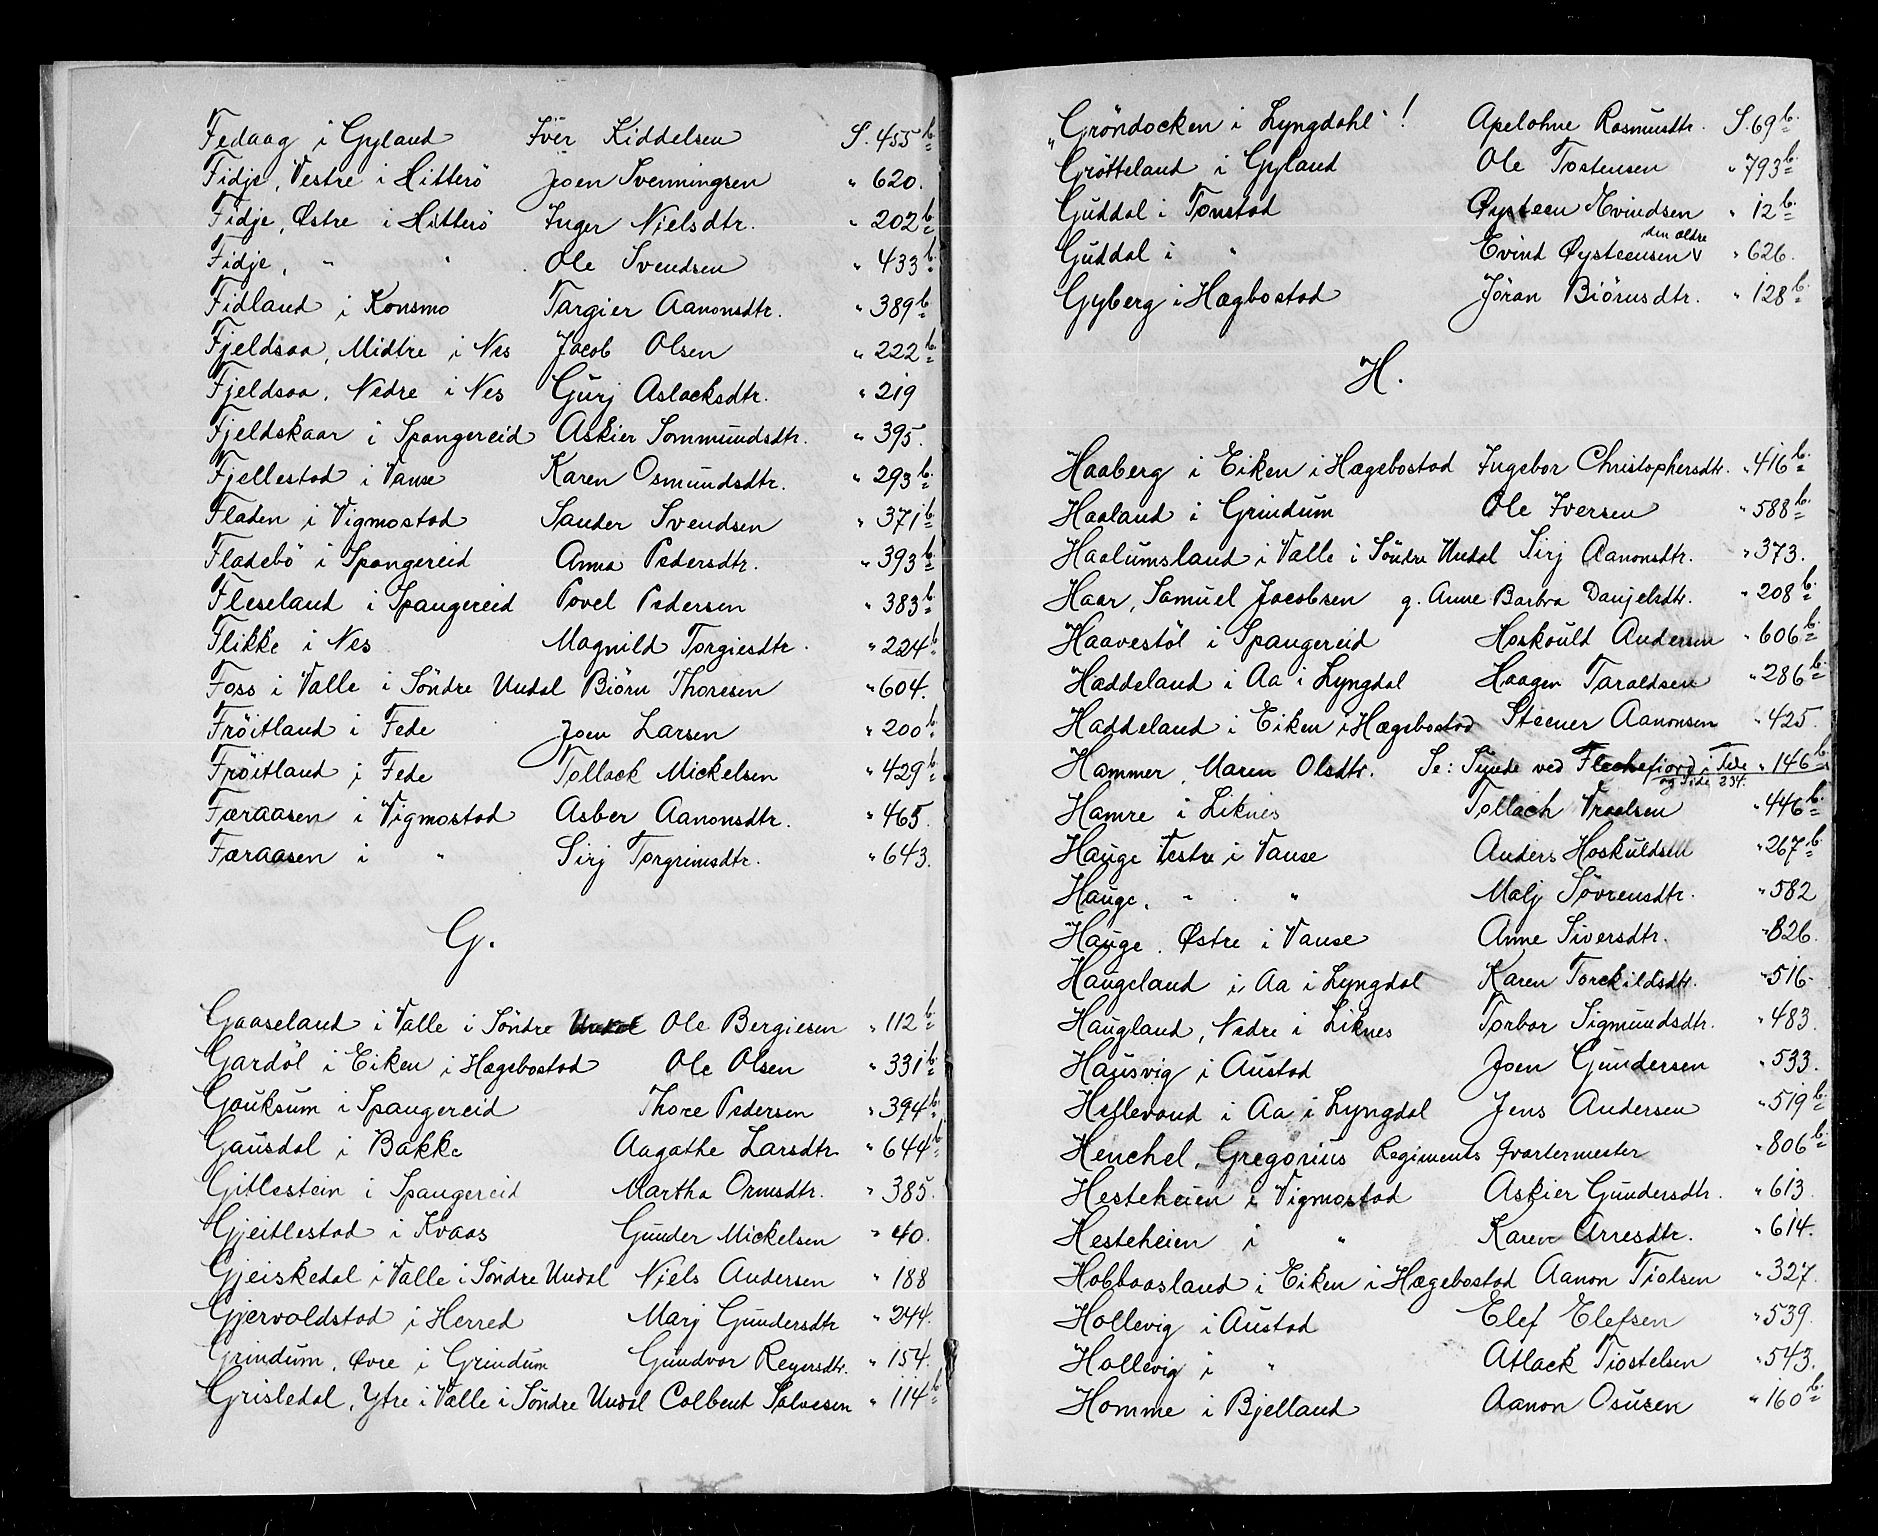 Fedaag i Gyland Iver Kiddelsen S. 455 b.
Fidje, Vestre i Hitterö Joen Svenningsen " 620.
Fidje, Østre i Hitterö Inger Nielsdtr. " 202 b.
Fidje, " " Ole Svendsen " 433 b.
Fidland i Konsmo Targier Aanonsdtr. " 389 b.
Fjeldsaa, Midtre i Nes Jacob Olsen " 222 b.
Fjeldsaa, Nedre i Nes Gurj Aslacksdtr. " 219
Fjeldskaar i Spangereid Askier Tommundsdtr. " 395.
Fjellestad i Vanse Karen Osmundsdtr. " 293 b.
Fladen i Vigmostad Sander Svendsen " 371 b.
Fladebö i Spangereid Anna Pedersdtr. " 393 b.
Fleseland i Spangereid Povel Pedersen " 383 b.
Flikke i Nes Magnild Torgiesdtr. " 224 b.
Foss i Valle i Söndre Undal Biörn Thoresen " 604.
Fröitland i Fede Joen Larsen " 200 b.
Fröitland i Fede Tollack Mickelsen " 429 b.
Færaasen i Vigmostad Asber Aanonsdtr. " 465.
Færaasen i " Sirj Torgrimsdtr. " 643.
G.
Gaaseland i Valle i Söndre Undal Ole Bergiesen " 112 b.
Gardöl i Eiken i Hægebostad Ole Olsen " 331 b.
Gauksum i Spangereid Thore Pedersen " 394 b.
Gausdal i Bakke Aagathe Larsdtr " 644 b.
Gitlestein i Spangereid Martha Ormsdtr. " 385.
Gjeitlestad i Kvaas Gunder Mickelsen " 40.
Gjeiskedal i Valle i Söndre Undal Niels Andersen " 188
Gjervoldstad i Herred Marj Gundersdtr " 244.
Grindum, Øvre i Grindum Gundvor Reyersdtr. " 154.
Grisledal, Ytre i Valle i Söndre Undal Colbent Salvesen " 114 b.
"Gröndocken i Lyngdahl" ! Apelohne Rasmusdtr. S. 69 b.
Grötteland i Gyland Ole Tostensen " 793 b.
Guddal i Tonstad Øysteen Evindsen " 12 b.
Guddal i " Evind Øysteensen den ældre " 626.
Gyberg i Hægbostad Jöran Biörnsdtr. " 128 b.
H.
Haaberg i Eiken i Hægebostad Ingebor Christophersdtr. " 416 b.
Haaland i Grindum Ole Iversen " 588 b.
Haalumsland i Valle i Söndre Undal Sirj Aanonsdtr. " 373.
Haar, Samuel Jacobsen g. Anne Barbra Danjelsdtr. " 208 b.
Haavestöl i Spangereid Hoskould Andersen " 606 b.
Haddeland i Aa i Lyngdal Haagen Taraldsen " 286 b.
Haddeland i Eiken i Hægebostad Steener Aanonsen " 425.
Hammer, Maren Olsdtr. Se: Sunde ved Fleckefiord i Fede " 146 b.
og Side 334.
Hamre i Liknes Tollach Vraalsen " 446 b.
Hauge Vestre i Vanse Anders Hoskuldsen " 267 b.
Hauge, " " Malj Sövrensdtr. " 582
Hauge. Østre i Vanse Anne Siversdtr. " 826.
Haugeland i Aa i Lyngdal Karen Torckildsdtr. " 516.
Haugland, Nedre i Liknes Torbor Sigmundsdtr. " 483.
Hausvig i Austad Joen Gundersen " 533.
Hellevand i Aa i Lyngdal Jens Andersen " 519 b.
Henchel, Gregorius Regiments Qvartermester " 806 b.
Hesteheien i Vigmostad Askier Gundersdtr. " 613.
Hesteheien i " Karen Arresdtr. " 614.
Hobbaasland i Eiken i Hægebostad Aanon Tiolsen " 327.
Hollevig i Austad Elef Elefsen " 539.
Hollevig i " Atlack Tiostelsen " 543.
Homme i Bjelland Aanon Osusen " 160 b.